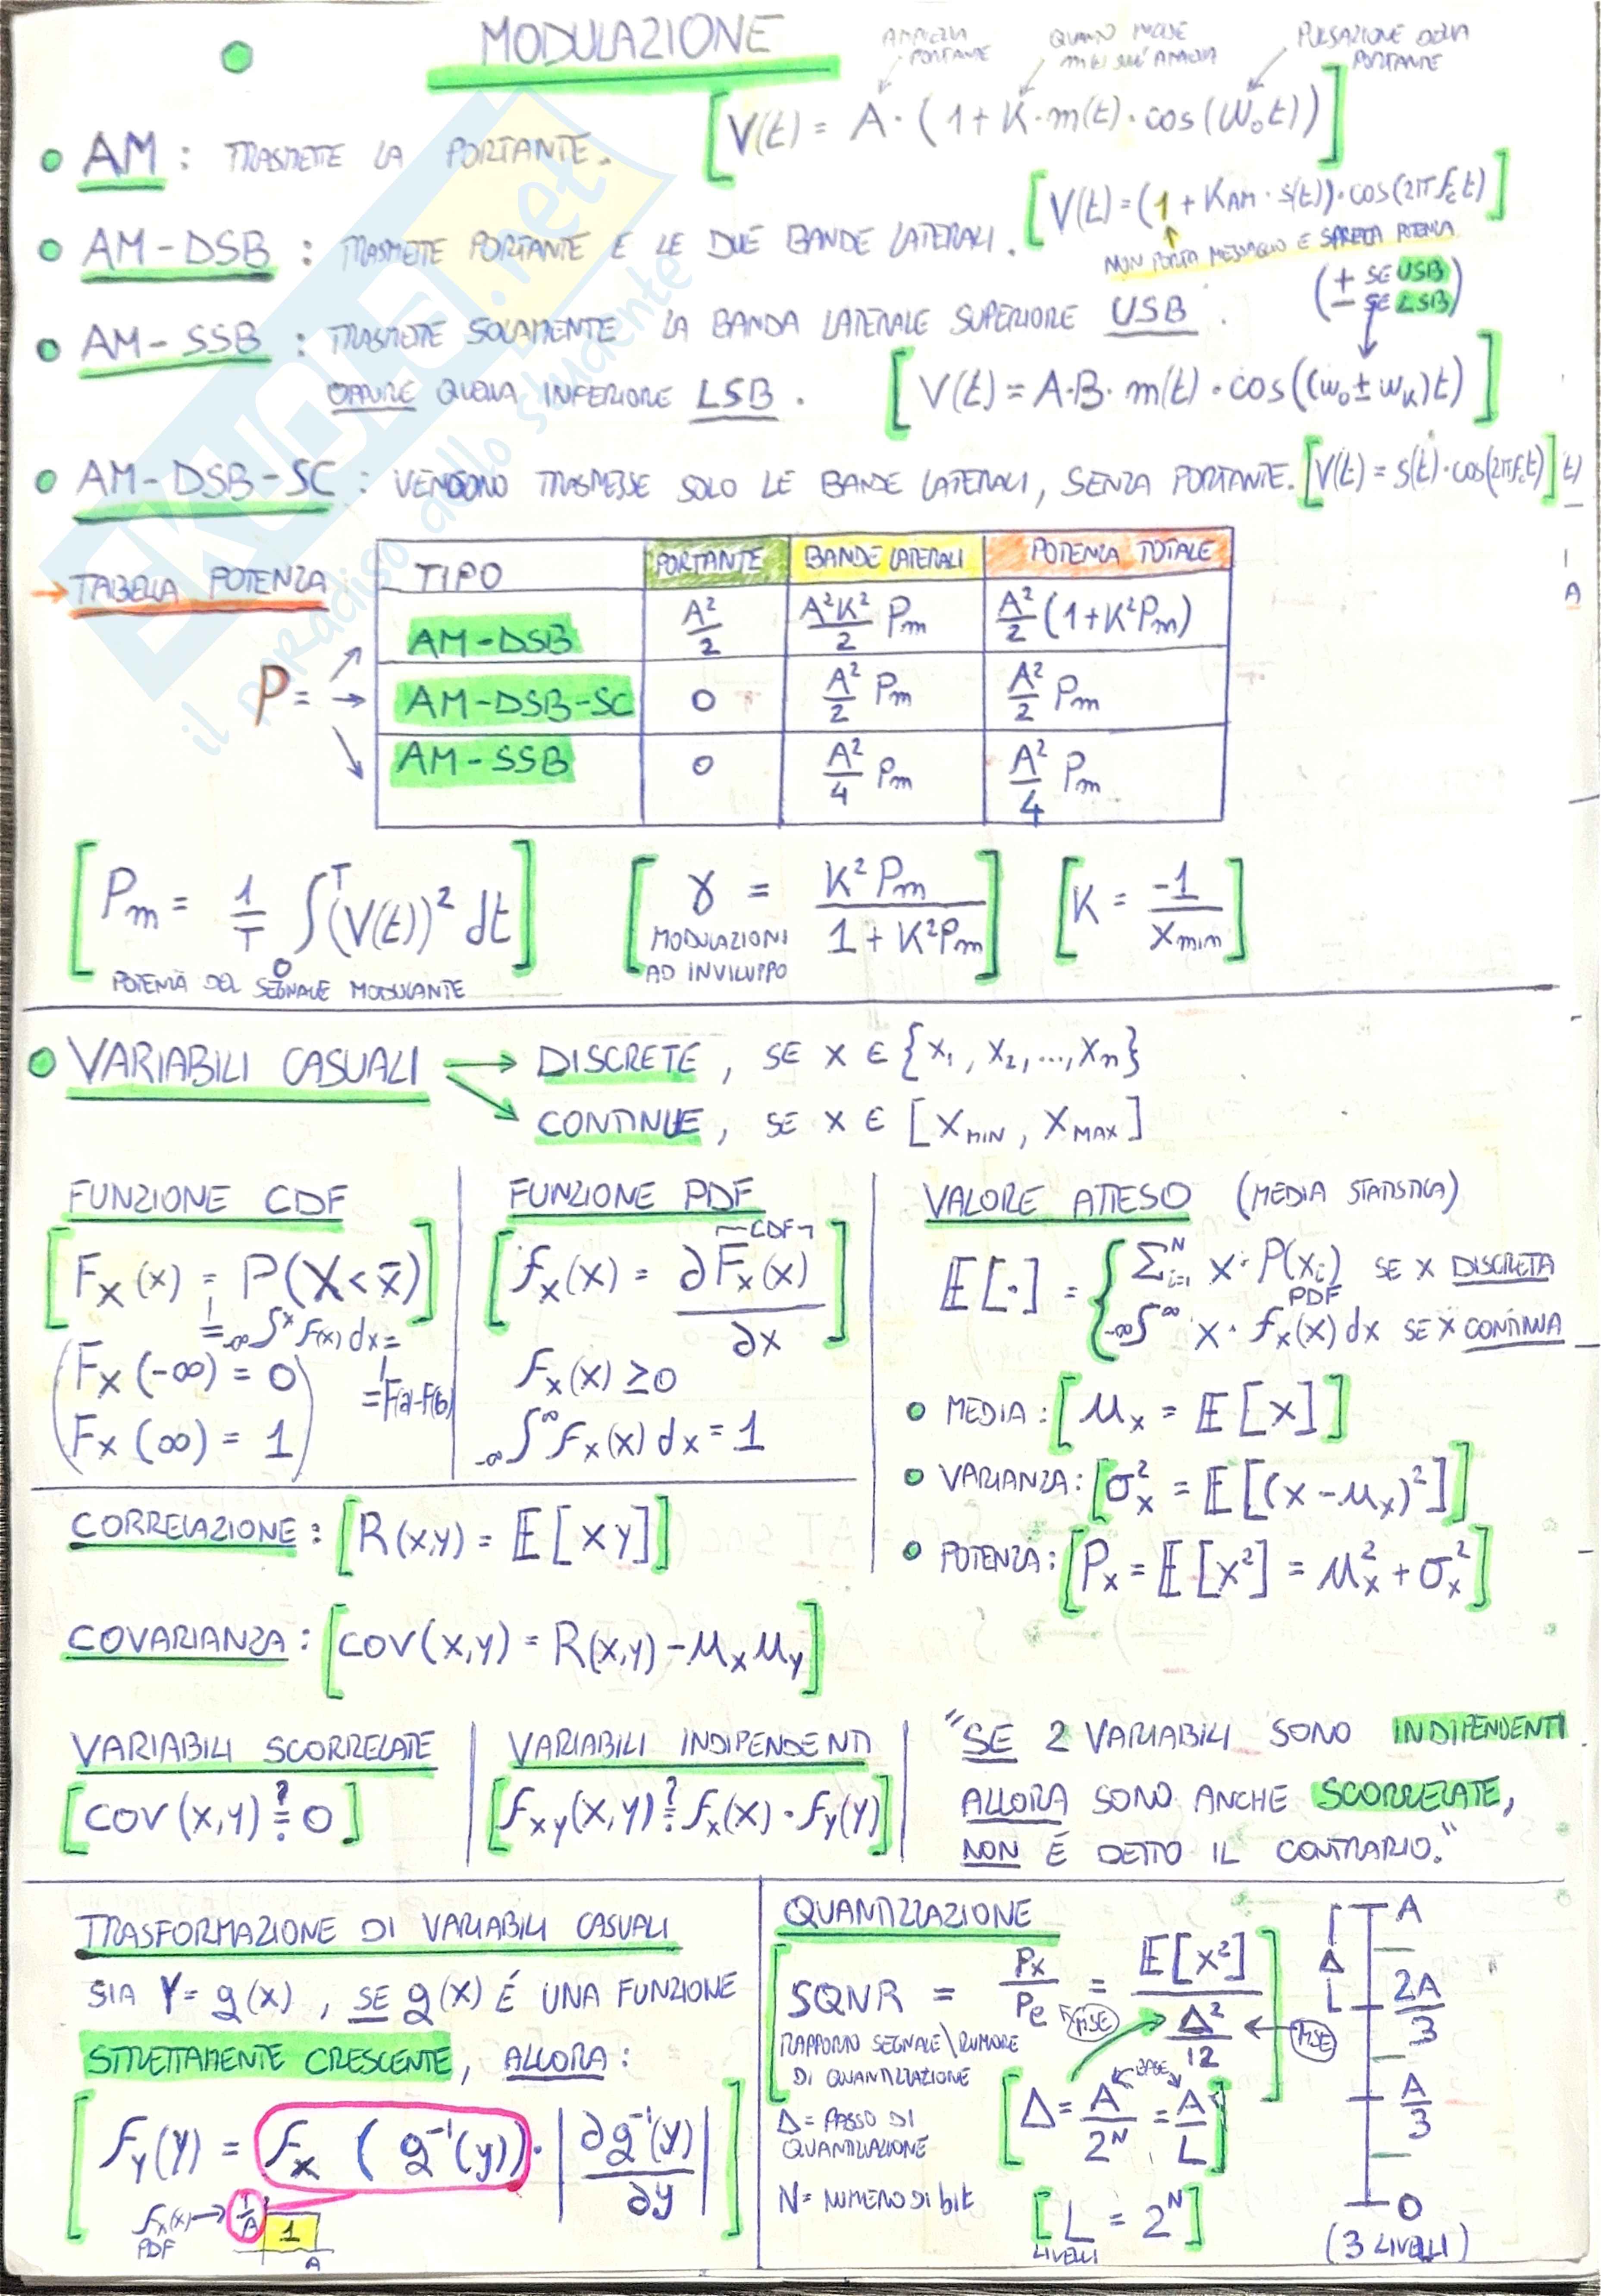 MODULAZIONE
AMPIEZZA PORTANTE
QUANTO INCIDE m(t) SULL'AMPIEZZA
PULSAZIONE DELLA PORTANTE
AM : TRASMETTE LA PORTANTE.
[V(t) = A · (1 + K · m(t) · cos(W₀t))]
AM-DSB : TRASMETTE PORTANTE E LE DUE BANDE LATERALI.
[V(t) = (1 + KAM · s(t)) · cos(2πfct)]
NON PORTA MESSAGGIO E SPRECA POTENZA
AM-SSB : TRASMETTE SOLAMENTE LA BANDA LATERALE SUPERIORE USB .
(+ SE USB
− SE LSB)
OPPURE QUELLA INFERIORE LSB .
[V(t) = A·B· m(t) · cos((w₀ ± wK)t)]
AM-DSB-SC : VENGONO TRASMESSE SOLO LE BANDE LATERALI, SENZA PORTANTE. [V(t) = s(t) · cos(2πfct)] t)
→ TABELLA POTENZA
TIPO PORTANTE BANDE LATERALI POTENZA TOTALE
AM-DSB A²/2 A²K²/2 Pm A²/2 (1+K²Pm)
P = → AM-DSB-SC 0 A²/2 Pm A²/2 Pm
AM-SSB 0 A²/4 Pm A²/4 Pm
A
[Pm = 1/T ∫₀ᵀ (V(t))² dt]
POTENZA DEL SEGNALE MODULANTE
[γ = K²Pm / 1 + K²Pm]
MODULAZIONI AD INVILUPPO
[K = −1 / Xmin]
VARIABILI CASUALI → DISCRETE , SE X ∈ {X₁, X₂, ..., Xn}
CONTINUE , SE X ∈ [XMIN , XMAX]
FUNZIONE CDF
[Fx(x) = P(X < x̄)]
= -∞∫ˣ f(x) dx =
= F(a)-F(b)
(Fx(-∞) = 0
Fx(∞) = 1)
FUNZIONE PDF
CDF
[fx(x) = ∂Fx(x) / ∂x]
fx(x) ≥ 0
-∞∫∞ fx(x) dx = 1
VALORE ATTESO (MEDIA STATISTICA)
E[·] = { Σᴺᵢ₌₁ X · P(xi) SE X DISCRETA
PDF
-∞∫∞ X · fx(x) dx SE X CONTINUA
MEDIA : [μx = E[X]]
VARIANZA : [σ²x = E[(X − μx)²]]
POTENZA : [Px = E[X²] = μ²x + σ²x]
CORRELAZIONE : [R(x,y) = E[XY]]
COVARIANZA : [COV(X,Y) = R(X,Y) − μx μy]
VARIABILI SCORRELATE
[COV(X,Y) ?= 0]
VARIABILI INDIPENDENTI
[fxy(X,Y) ?= fx(X) · fy(Y)]
"SE 2 VARIABILI SONO INDIPENDENTI
ALLORA SONO ANCHE SCORRELATE,
NON É DETTO IL CONTRARIO."
TRASFORMAZIONE DI VARIABILI CASUALI
SIA Y = g(x) , SE g(x) É UNA FUNZIONE
STRETTAMENTE CRESCENTE, ALLORA :
[fY(Y) = fx (g⁻¹(y)) · |∂g⁻¹(y) / ∂y|]
fx(x) → 1/A 1
PDF
A
QUANTIZZAZIONE
[SQNR = Px / Pe = E[X²] / Δ²/12]
MSE
MSE
RAPPORTO SEGNALE\RUMORE
DI QUANTIZZAZIONE
BASE
[Δ = A / 2ᴺ = A / L]
Δ = PASSO DI
QUANTIZZAZIONE
N = NUMERO DI bit
[L = 2ᴺ]
LIVELLI
A
Δ
2A/3
A/3
0
(3 LIVELLI)
SKUOLA.net
il paradiso dello studente